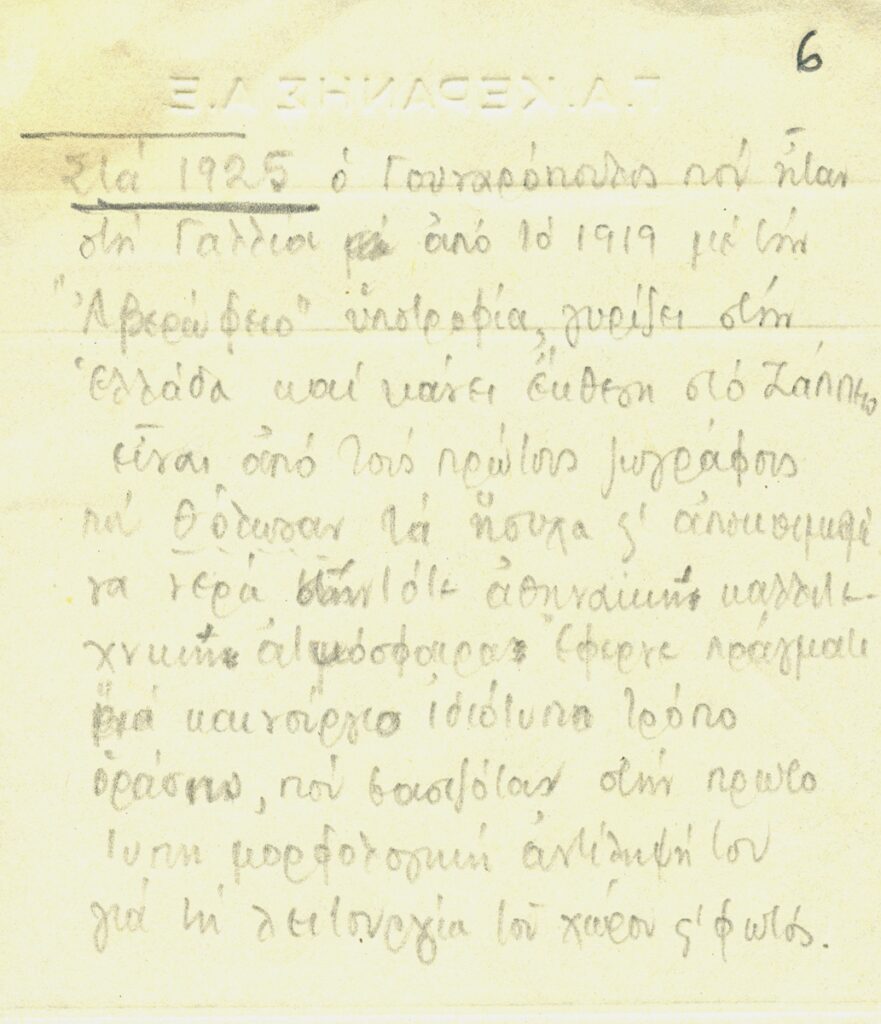 6
Γ.Α. ΚΕΡΑΝΗΣ Α.Ε
Στά 1925 ὁ Γουναρόπουλος πού ἦταν
στή Γαλλία ἀπό τό 1919 μέ τήν
"Ἀβερώφειο" ὑποτροφία, γυρίζει στήν
Ἑλλάδα καί κάνει ἔκθεση στό Ζάππειο
εἶναι ἀπό τούς πρώτους ζωγράφους
πού θόλωσαν τά ἥσυχα ϛ' ἀποκοιμισμέ
να νερά τότε ἀθηναϊκῆς καλλιτε-
χνικῆς ἀτμόσφαιρας Ἔφερνε πράγματι
καινούργιο ἰδιότυπο τρόπο
ὁράσεως, πού βασιζόταν στήν πρωτό
τυπη μορφολογική ἀντίληψή του
γιά τή λειτουργία τοῦ χώρου ϛ' φωτός.